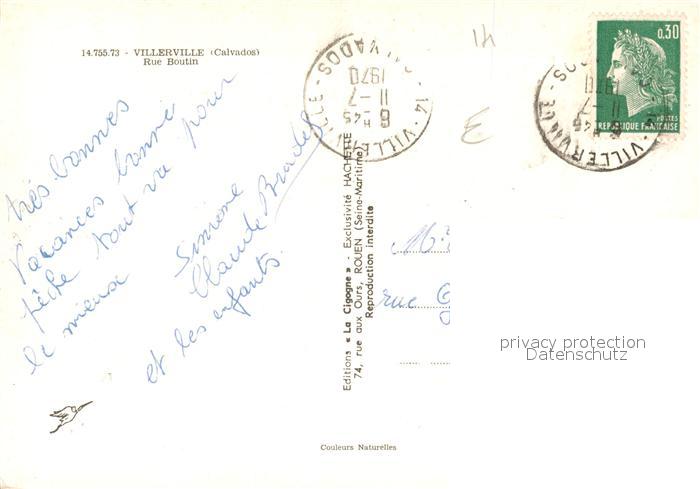 14.755.73 - VILLERVILLE (Calvados)
Rue Boutin
très bonnes
vacances bonne
pêche tout va pour
le mieux
Simone
Claude
et les enfants.
Editions « La Cigogne » - Exclusivité HACHETTE
74, rue aux Ours, ROUEN (Seine-Maritime)
Reproduction interdite
Couleurs Naturelles
14
14 - VILLERVILLE - CALVADOS
6 H 45
11 - 7
1970
0,30
POSTES
REPUBLIQUE FRANÇAISE
rue
privacy protection
Datenschutz